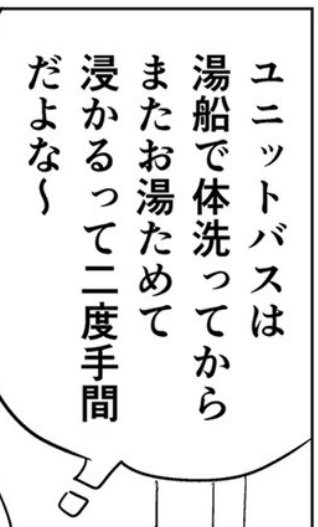 ユニットバスは
湯船で体洗ってから
またお湯ためて
浸かるって二度手間
だよな〜